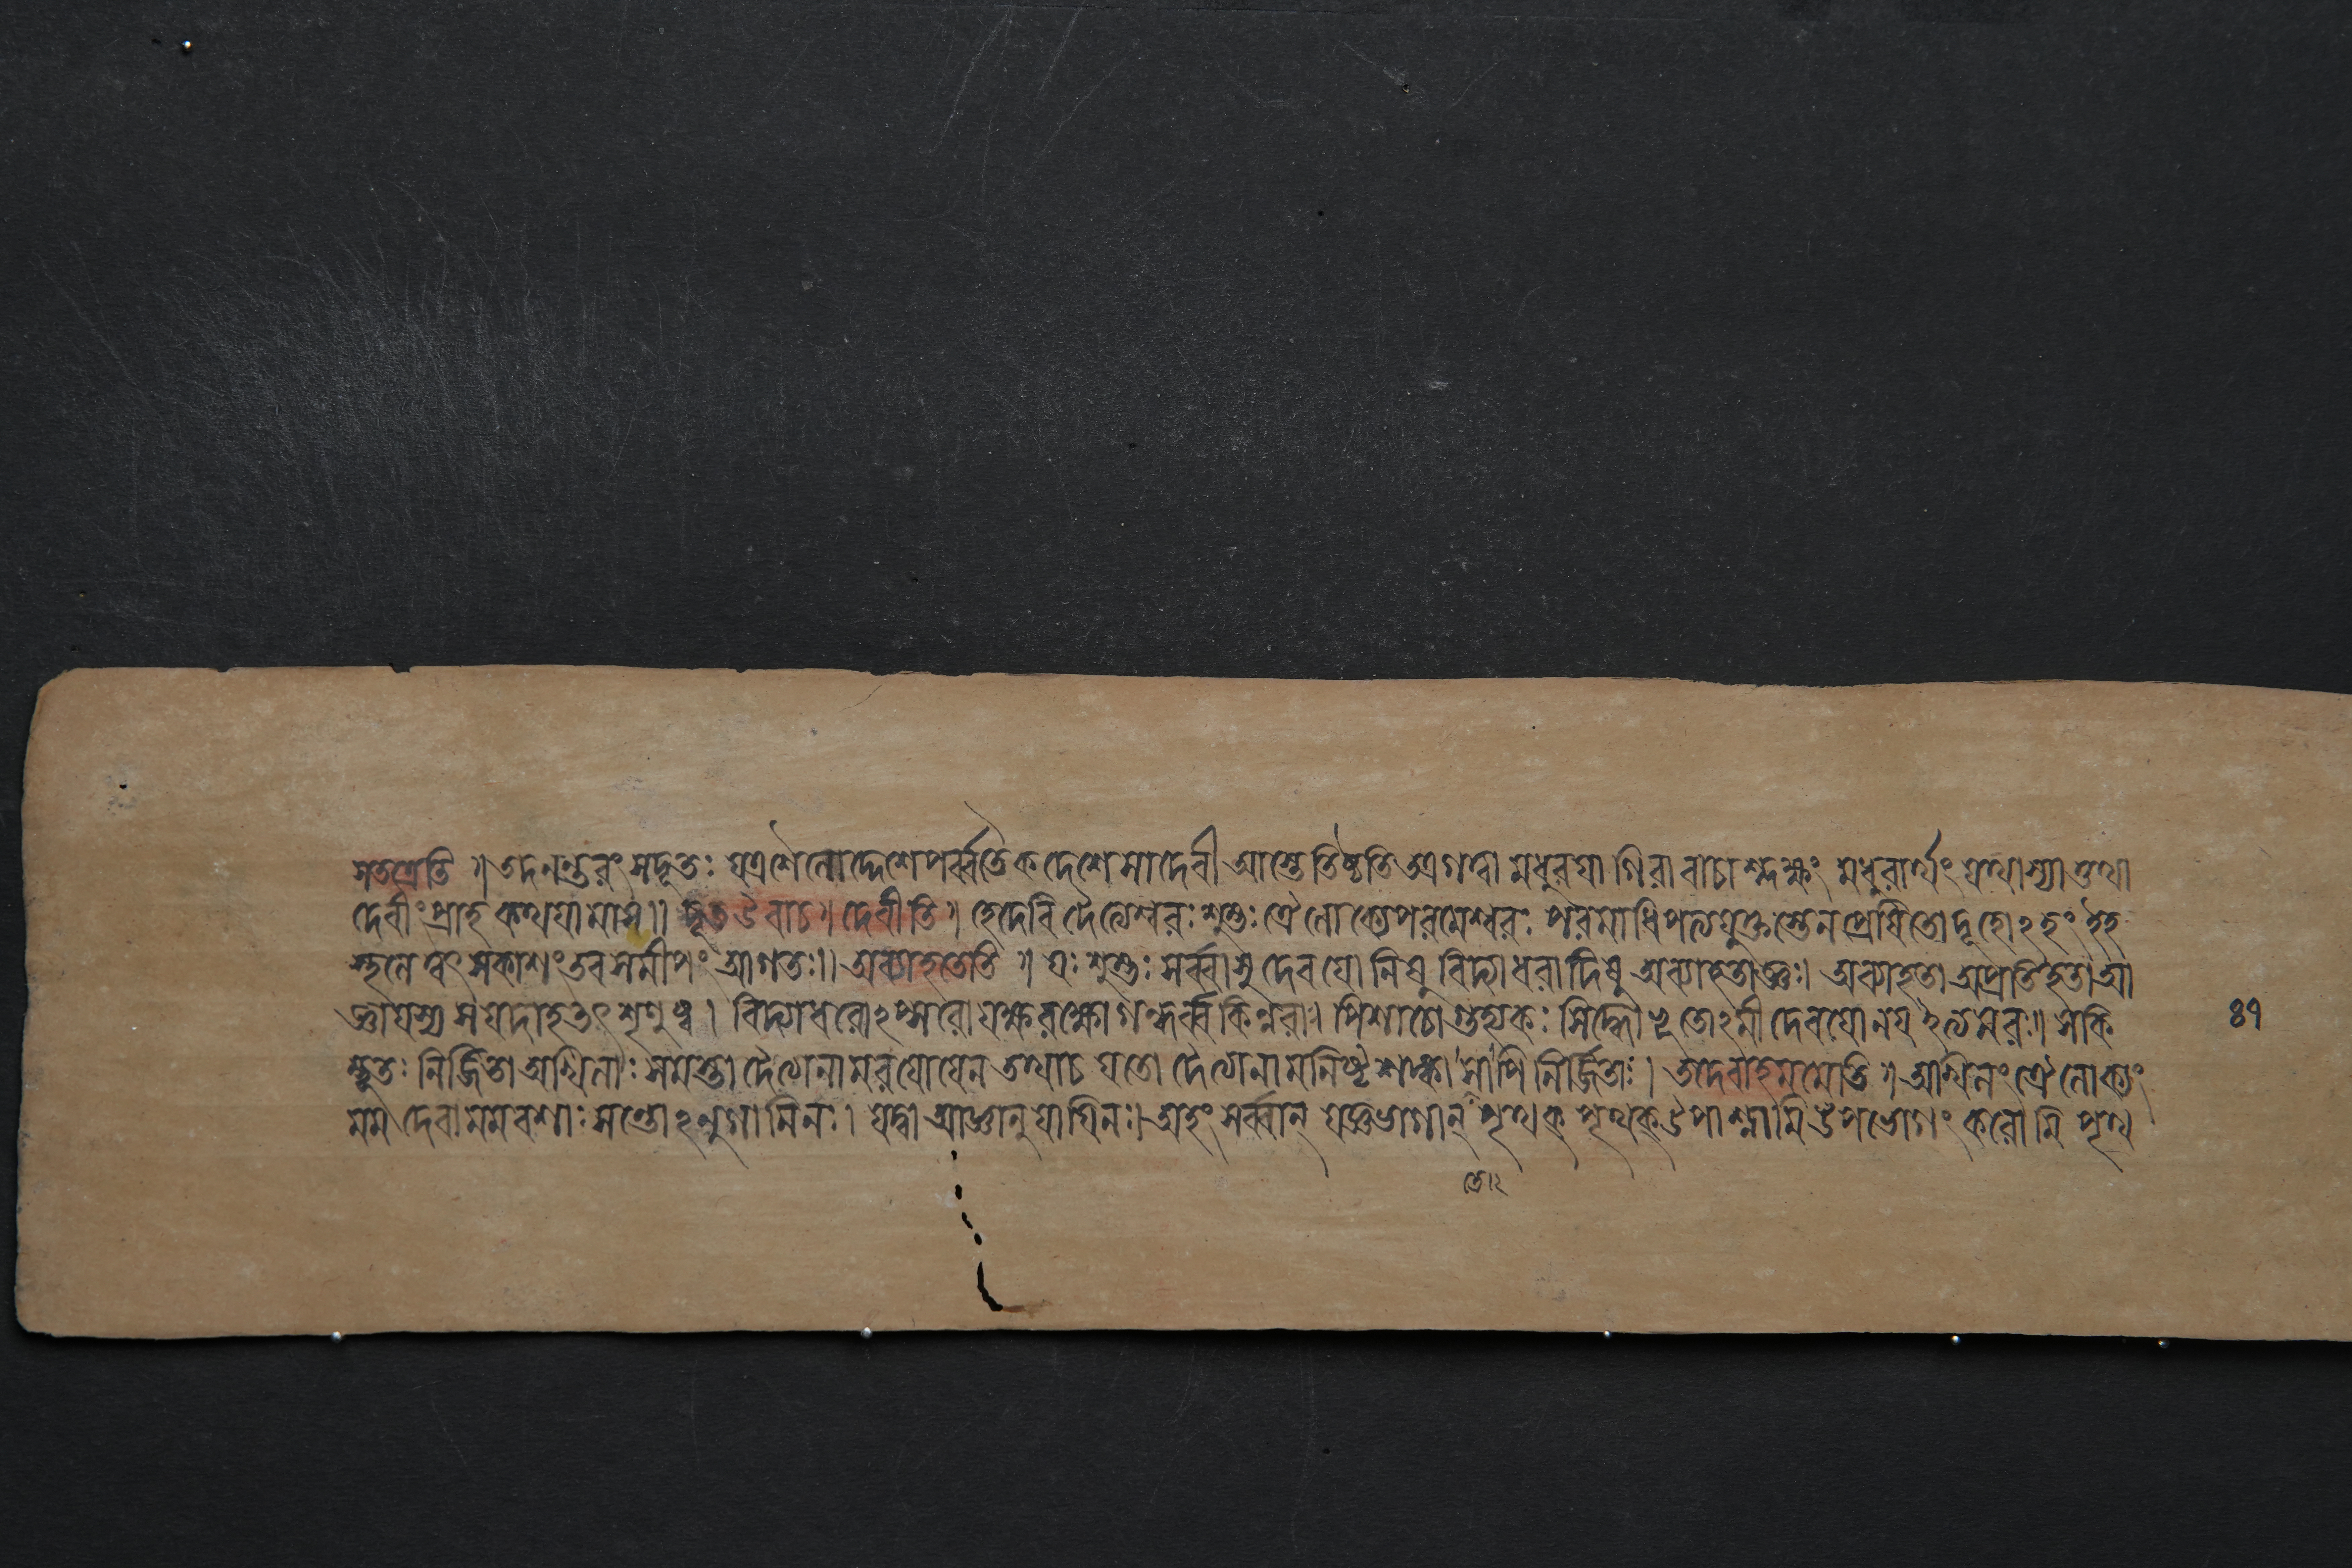 সতত্রেতি ॥ তদনন্তরং সদূতঃ যত্রশৈলোদ্দেশেপর্ব্বতৈকদেশেসাদেবী আস্তেতিষ্ঠতি তত্রগত্বা মধুরয়া গিরাবাচাশ্লক্ষ্ণং মধুরার্থং যথাস্যাত্তথা
দেবীং প্রাহ কথয়ামাস॥ দূতউবাচ॥ দেবীতি॥ হেদেবি দৈত্যেশ্বরঃ শুম্ভঃ ত্রৈলোক্যেপরমেশ্বরঃ পরমাধিপত্যযুক্তস্তেনপ্রেষিতোদূতোঽহং ইহ
স্থলে ত্বৎ সকাশং তবসমীপং আগতঃ॥ অব্যাহতেতি ॥ যঃ শুম্ভঃ সর্ব্বাসু দেবযোনিষু বিদ্যাধরাদিষু অব্যাহতাজ্ঞঃ। অব্যাহতা অপ্রতিহতাআ
জ্ঞাযস্য সযদাহতৎ শৃণুষ্ব। বিদ্যাধরোঽপ্সরোযক্ষরক্ষোগন্ধর্ব্বকিন্নরাঃ। পিশাচোগুহ্যকঃ সিদ্ধোভূতোঽমীদেবযোনয়ইত্যমরঃ॥ সকি
ম্ভূতঃ নির্জ্জিতাঅখিলাঃ সমস্তা দৈত্যানামরয়োযেন তথাচ যতো দৈত্যানামনিষ্টশঙ্কা সাপি নির্জ্জিতাঃ। তদেবাহমমেতি॥ অখিলংত্রৈলোক্যং
মম দেবামমবশাঃ সন্তোঽনুগামিনঃ। যদ্বা আজ্ঞানুযায়িনঃ। অহং সর্ব্বান্ যজ্ঞভাগান্ পৃথক্ পৃথক্উপাশ্নামি উপভোগং করোমি পৃথ
৪৭